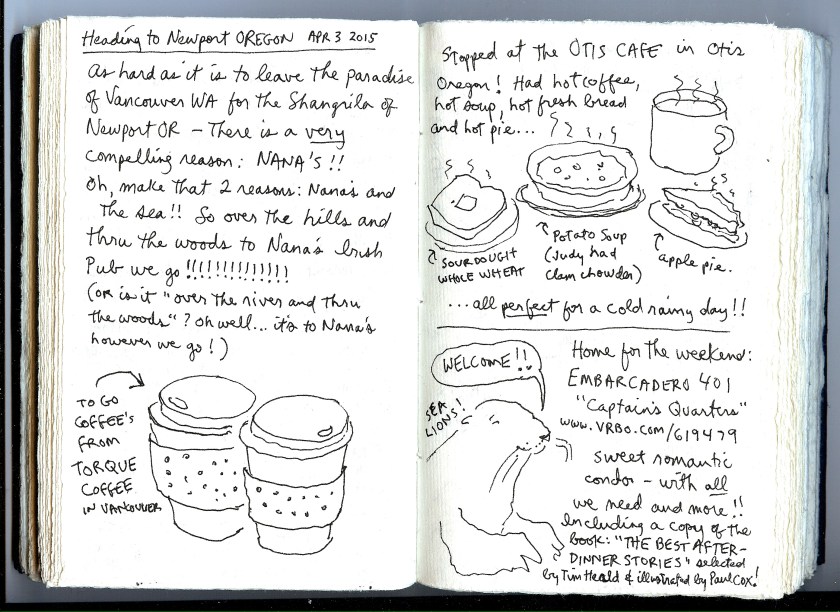 Heading to Newport OREGON APR 3 2015
As hard as it is to leave the paradise
of Vancouver WA for the Shangrila of
Newport OR – There is a very
compelling reason: NANA'S!!
Oh, make that 2 reasons: Nana's and
The sea!! So over the hills and
thru the woods to Nana's Irish
Pub we go !!!!!!!!!!!!!!
(OR is it "over the river and thru
the woods"? Oh well... it's to Nana's
however we go!)
TO GO
COFFEE'S
FROM
TORQUE
COFFEE
IN VANCOUVER
Stopped at the OTIS CAFE in Otis
Oregon! Had hot coffee,
hot soup, hot fresh bread
and hot pie...
SOURDOUGH
WHOLE WHEAT
Potato Soup
(Judy had
clam chowder)
apple pie.
...all perfect for a cold rainy day!!
WELCOME!!
SEA
LIONS!
Home for the weekend:
EMBARCADERO 401
"Captain's Quarters"
www.VRBO.com/619479
sweet romantic
condo – with all
we need and more!!
Including a copy of the
book: "THE BEST AFTER-
DINNER STORIES" selected
by Tim Heald & illustrated by Paul Cox!